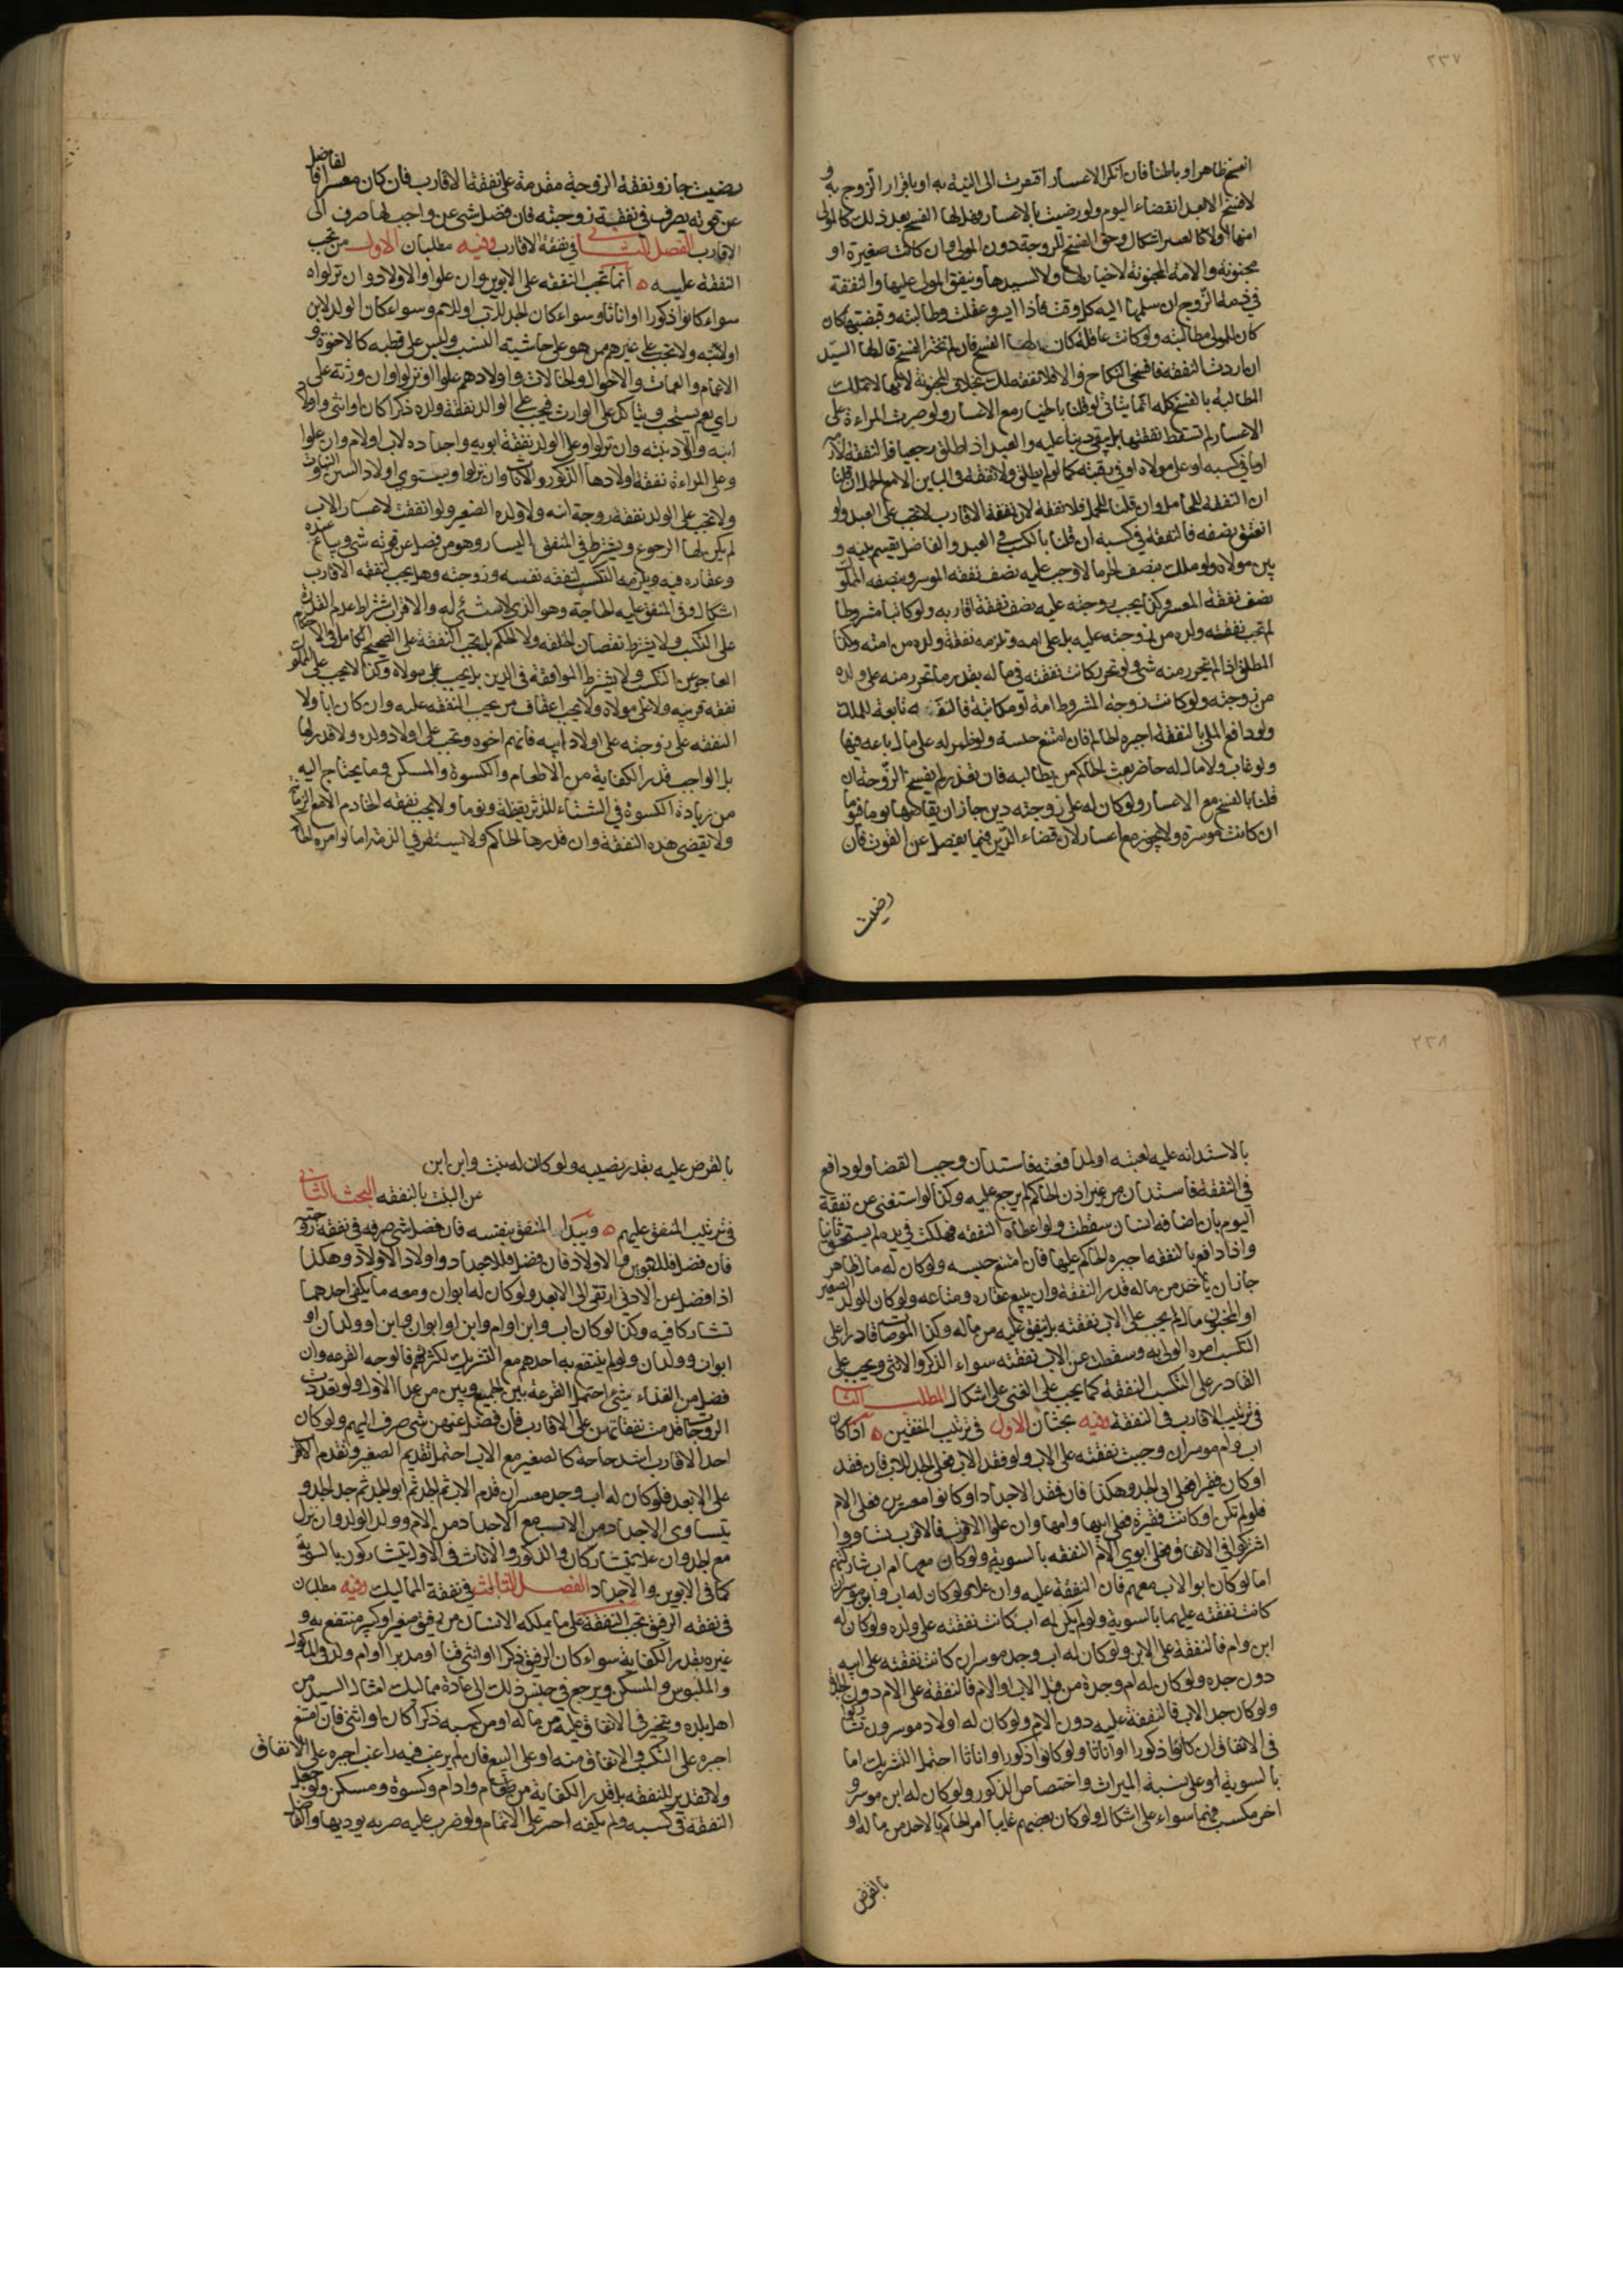 ٢٣٧
انفسخ ظاهرا و باطنا فان انكر الاعسار افتقرت الى البينة به او باقرار الزوج به و
لا فسخ الا بعد انقضاء اليوم ولو رضيت بالاعسار فهل لها الفسخ بعد ذلك كالمولى
منها اولا كالعسر اشكال وحق الفسخ للزوجة دون المولى وان كانت صغيرة او
مجنونة والامة المجنونة لا خيار لها ولا لسيدها وينفق المولى عليها والنفقة
في ذمة الزوج ان سلمها اليه كل وقت فاذا ايسر وعقلت وطالبته وقبضتها كان
كان للمولى مطالبته ولو كانت عاقلة كان لها الفسخ فان لم تختر الفسخ قال لها السيد
ان اردت النفقة فافسخي النكاح والا فلا نفقة لك بخلاف المجنونة لانها لا تملك
المطالبة بالفسخ كله انما يتأتى لو قلنا بالخيار مع الاعسار ولو صبرت المراءة على
الاعسار لم تسقط نفقتها بل يبقى دينا عليه والعبد اذا طلق رجعيا فالنفقة لازمة
اما في كسبه او على مولاه او في رقبته كما لو لم يطلق ولا نفقة في الباين الا مع الحمل ان قلنا
ان النفقة للحامل وان قلنا للحمل فلا نفقة لان نفقة الاقارب لا تجب على العبد ولو
انعتق نصفه فالنفقة في كسبه ان قلنا بالكسب في العبد والفاضل يقسم بينه و
بين مولاه ولو ملك بنصف الحر مالا وجب عليه نصف نفقة الموسر وبنصفه المملوك
نصف نفقة المعسر وكذا يجب بزوجته عليه نصف نفقة اقاربه ولو كاتبا مشروطا
لم تجب نفقته ولده من زوجته عليه بل على امه وتلزمه نفقة ولده من امته وكذا
المطلق اذا لم يتحرر منه شئ ولو تحرر كانت نفقته في ماله بقدر ما تحرر منه على ولده
من زوجته ولو كانت زوجة المشروط امة او مكاتبة فالنفقة تابعة للملك
ولو دافع الملي بالنفقة اجبره الحاكم فان امتنع حبسه ولو ظهر له على مال باعه فيها
ولو غاب ولا مال له حاضر بعث الحاكم من يطالبه فان تعذر لم يفسخ الزوجة ان
قلنا بالفسخ مع الاعسار ولو كان له على زوجته دين جاز ان يقاصها يوما فيوما
ان كانت موسرة ولا يجوز مع اعسار لان قضاء الدين فيما يفضل عن القوت فان
رضيت
رضيت جاز ونفقة الزوجة مقدمة على نفقة الاقارب فان كان معسرا فالفاضل
عن قوته يصرف في نفقة زوجته فان فضل شئ عن واجب لها صرف الى
الاقارب الفصل الثاني في نفقة الاقارب وفيه مطلبان الاول من تجب
النفقة عليه ه انما تجب النفقة على الابوين وان علوا والاولاد وان نزلوا
سواء كانوا ذكورا او اناثا وسواء كان الجد للاب او للام وسواء كان الولد لابن
او لابنة ولا تجب على غيرهم من هو على حاشية النسب وليس على قطبه كالاخوة و
الاعمام والعمات والاخوال والخالات واولادهم علوا او نزلوا وان ورثه على
راي نعم يستحب ويتأكد على الوارث فيجب على الوالد نفقة ولده ذكرا كان او انثى واولاد
ابنه واولاد بنته وان نزلوا وعلى الولد نفقة ابويه واجداده لاب او لام وان علوا
وعلى المراءة نفقة اولادها الذكور والاناث وان نزلوا ويستوي اولاد البنين والبنات
ولا تجب على الولد نفقة زوجة ابنه ولا ولده الصغير ولو انفقت لاعسار الاب
لم يكن لها الرجوع ويشترط في المنفق اليسار وهو من فضل عن قوته شئ ويباع عبده
وعقاره فيه ويلزمه التكسب لنفقة نفسه وزوجته وهل يجب لنفقة الاقارب
اشكال وفي المنفق عليه الحاجة وهو الذي لا شئ له والاقرب اشتراط عدم القدرة
على التكسب ولا يشترط نقصان الخلقة ولا الحكم بل تجب النفقة على الصحيح الكامل في الاحكام
العاجز عن التكسب ولا يشترط الموافقة في الدين بل يجب على مولاه وكذا لا يجب على المملوك
نفقة قريبه ولا على مولاه ولا يجب اعفاف من يجب النفقة عليه وان كان ابا ولا
النفقة على زوجته على اولاد ابيه فانهم اخوه وتجب على اولاد ولده ولا قدر لها
بل الواجب قدر الكفاية من الاطعام والكسوة والمسكن وما يحتاج اليه
من زيادة الكسوة في الشتاء للدثر يقظة ونوما ولا يجب نفقة الخادم الا مع الزمانة
ولا تقضى هذه النفقة وان قدرها الحاكم ولا يستقر في الذمة اما لو امره الحاكم
٢٣٨
بالاستدانة عليه لغيبته او لمدافعته فاستدان وجب القضا ولو دافع
في النفقة فاستدان من غير اذن الحاكم لم يرجع عليه وكذا لو استغنى عن نفقة
اليوم بان اضافه انسان سقطت ولو اعطاه النفقة فهلكت في يده لم يستحق ثانيا
واذا دافع بالنفقة اجبره الحاكم عليها فان امتنع حبسه ولو كان له مال ظاهر
جاز ان ياخذ من ماله قدر النفقة وان يبيع عقاره ومتاعه ولو كان للولد الصغير
او المجنون مال لم يجب على الاب نفقته بل ينفق عليه من ماله وكذا لو صار قادرا على
التكسب امره الولي به وسقطت عن الاب نفقته سواء الذكر والانثى ويجب على
القادر على التكسب النفقة كما يجب على الغني على اشكال المطلب الثاني
في ترتيب الاقارب في النفقة وفيه بحثان الاول في ترتيب المنفقين ه اذا كان
اب وام موسران وجبت نفقته على الاب ولو فقد الاب فعلى الجد للاب فان فقد
او كان فقيرا فعلى ابي الجد وهكذا فان فقد الاجداد او كانوا معسرين فعلى الام
فلو لم تكن او كانت فقيرة فعلى ابيها وامها وان علوا الاقرب فالاقرب تساووا
اشتركوا في الانفاق فعلى ابوي الام النفقة بالسوية ولو كان معهما ام اب شاركتهم
اما لو كان ابو الاب معهم فان النفقة عليه وان علا ولو كان له اب وابن موسران
كانت نفقته عليهما بالسوية ولو لم يكن له اب كانت نفقته على ولده ولو كان له
ابن وام فالنفقة على الابن ولو كان له اب وجد موسران كانت نفقته على ابيه
دون جده ولو كان له ام وجدة من قبل الاب او الام فالنفقة على الام دون الجدة
ولو كان جد الاب فالنفقة عليه دون الام ولو كان له اولاد موسرون تشاركوا
في الانفاق ان كانوا ذكورا او اناثا ولو كانوا ذكورا واناثا احتمل التشريك اما
بالسوية او على نسبة الميراث واختصاص الذكور ولو كان له ابن موسر و
اخر مكسب فهما سواء على اشكال ولو كان بعضهم غايبا امر الحاكم بالاخذ من ماله او
بالقرض
بالقرض عليه بقدر نصيبه ولو كان له بنت وابن ابن
عن البنت بالنفقة البحث الثاني
في ترتيب المنفق عليهم ه ويبداء المنفق بنفسه فان فضل شئ صرفه في نفقة زوجته
فان فضل فللابوين والاولاد فان فضل فللاجداد واولاد الاولاد وهكذا
اذا فضل عن الادنى ارتقى الى الابعد ولو كان له ابوان ومعه ما يكفي احدهما
تشاركا فيه وكذا لو كان اب وابن او ام وابن او ابوان وابن او ولدان او
ابوان وولدان ولو لم ينتفع به احدهم مع التشريك لكثرتهم فالوجه القرعة وان
فضل من الغذاء شئ احتمل القرعة بين الجميع وبين من عدا الاول ولو تعددت
الزوجات قدمت نفقاتهن على الاقارب فان فضل عنهن شئ صرف اليهم ولو كان
احد الاقارب اشد حاجة كالصغير مع الاب احتمل تقديم الصغير وتقدم الاقرب
على الابعد فلو كان له اب وجد معسران قدم الاب ثم الجد ثم ابو الجد ثم جد الجد و
يتساوى الاجداد من الاب مع الاجداد من الام وولد الولد وان نزل
مع الجد وان علا يتشاركان والذكور والاناث في الاولاد يتشاركون بالسوية
كما في الابوين والاجداد الفصل الثالث في نفقة المماليك وفيه مطلبان
في نفقة الرقيق تجب النفقة على ما يملكه الانسان من رقيق صغير او كبير منتفع به و
غيره بقدر الكفاية سواء كان الرقيق ذكرا او انثى قنا او مدبرا او ام ولد في المأكول
والملبوس والمسكن ويرجع في جنس ذلك الى عادة مماليك امثال السيد من
اهل بلده ويتخير في الانفاق عليه من ماله او من كسبه ذكرا كان او انثى فان امتنع
اجبره على التكسب والانفاق منه او على البيع فان لم يرغب فيه راغب اجبره على الانفاق
ولا تقدير للنفقة بل قدر الكفاية من طعام وادام وكسوة ومسكن ولو جعل
النفقة في كسبه ولم يكفه اجبر على الاتمام ولو ضرب عليه ضريبة يوديها والفاضل